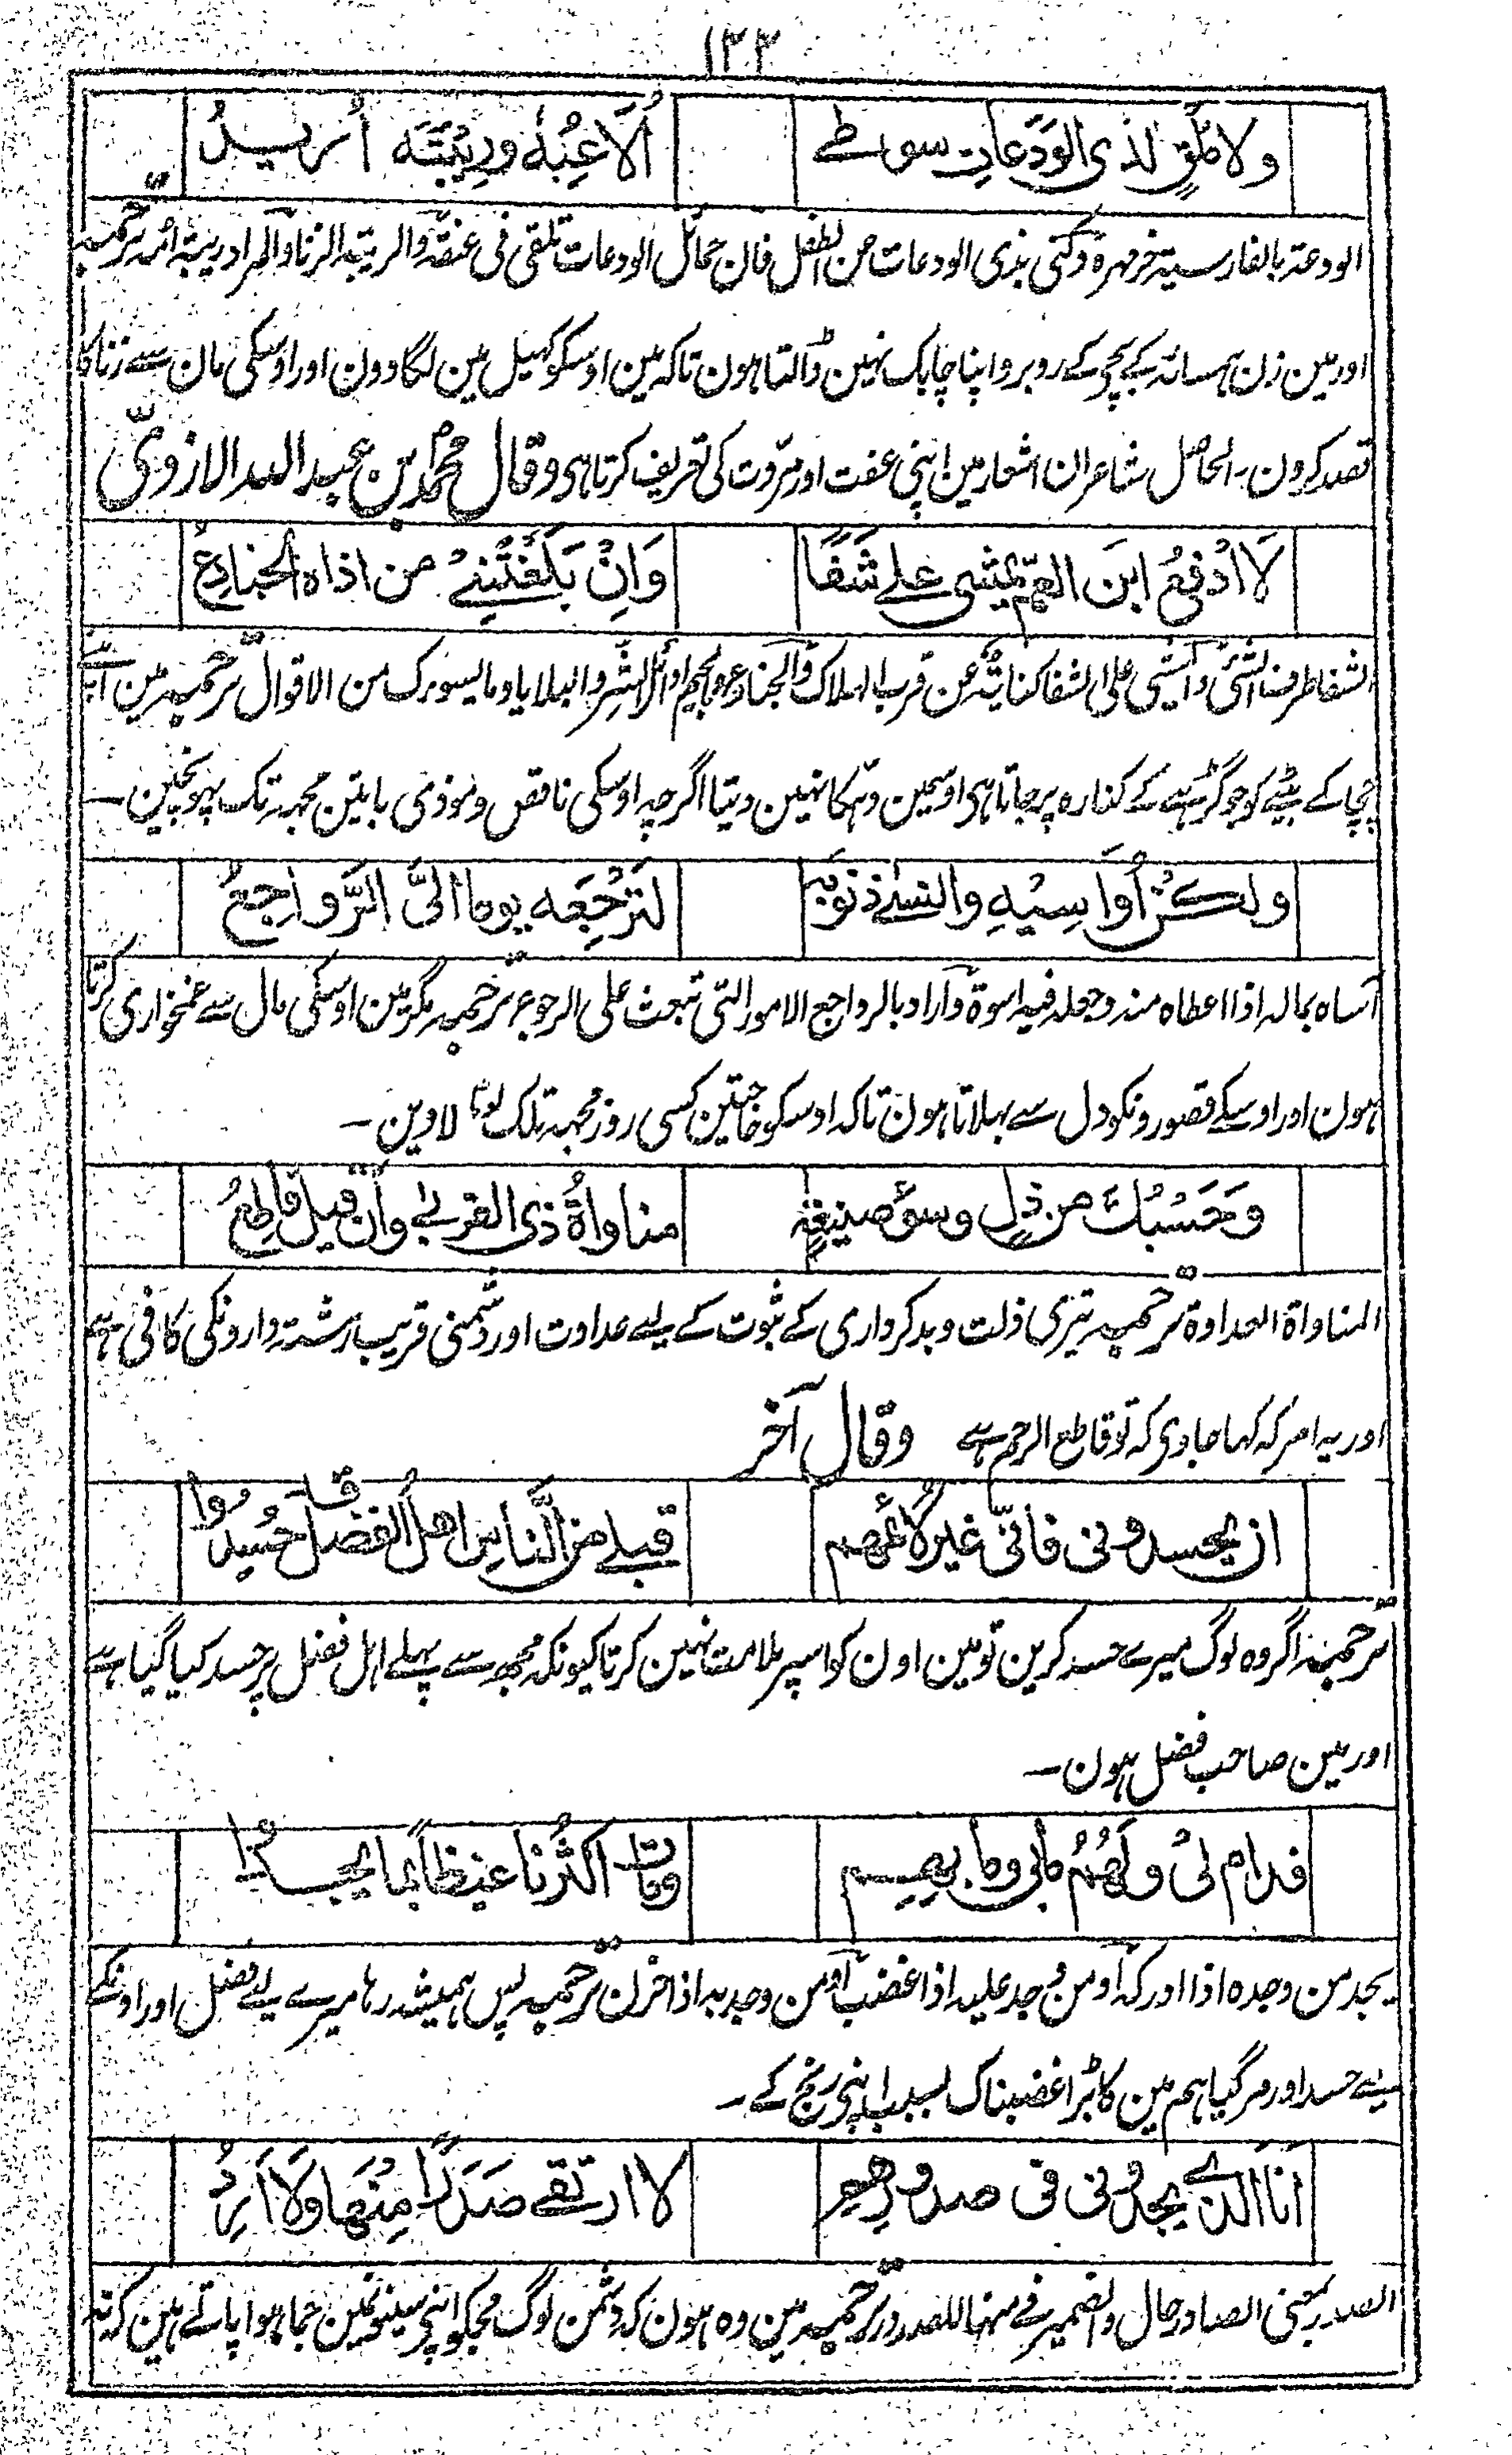 ۱۳۳
ولا ملقٍ لذی الودعاتِ سوطے اُلاعِبُهٗ ورِیْبَتَه اُریدُ
الودعۃ بالفارسیۃ خرمہرہ وکنی بذی الودعات من الطفل فان حمائل الودعات تلقی فی عنقہ والریبۃ الزنا والمراد ریبۃ امہ ترجمہ
اور مین زن ہمسائہ کے بچی کے روبرو اپنا چابک نہین ڈالتا ہون تاکہ مین اوسکو کھیل مین لگا دون اور اوسکی مان سے زنا کا
قصد کرون ۔ الحاصل شاعر ان اشعار مین اپنی عفت اور مروّت کی تعریف کرتا ہی وقال محمد بن عبد اللہ الازدیّ
لَا اَدْفِعُ ابنَ العمّ یمشی علے شَفًا وَاِنْ بَلَغَتْنِیْ من اذاه الجنادِعُ
الشفا طرف الشئ والمشی علی الشفا کنایۃ عن قرب الہلاک والجنادع بالجیم اوائل الشر والبلایا وما یسوءک من الاقوال ترجمہ مین اپنے
چچا کے بیٹے کو جو گڑہے کے کنارہ پر جاتا ہی اوسمین دہکا نہین دیتا اگرچہ اوسکی ناقص و موذی باتین مجہہ تک پہونچین ۔
ولکن اُوَاسِیْهِ وانسے ذنوبَه لتَرْجِعَه یوما الیَّ الرَّواجِعُ
آساہ بمالہ اذا اعطاہ منہ وجعلہ فیہ اسوۃ واراد بالرواجع الامور التی تبعث علی الرجوع ترجمہ مگر مین اوسکی مال سے غمخواری کرتا
ہون اور اوسکے قصورونکو دل سے بہلاتا ہون تاکہ اوسکو حاجتین کسی روز مجہہ تلک لوٹا لاوین ۔
وَحَسْبُكَ من ذلٍ وسوءِ صنیعةٍ مناواةُ ذی القربے وان قیل قاطعُ
المناواۃ العداوۃ ترجمہ تیری ذلت و بدکرداری کے ثبوت کے لیے عداوت اور دشمنی قریب رشتہ دارونکی کافی ہے
اور یہ امر کہ کہا جاوی کہ تو قاطع الرحم ہے وقال آخر
ان یحسدونی فانّی غیر لائمهم قبلے من النّاس اهلُ الفضل قد حُسِدُوا
ترجمہ اگر وہ لوگ میرے حسد کرین تو مین اون کو اسپر ملامت نہین کرتا کیونکہ مجھ سے پہلے اہل فضل پر حسد کیا گیا ہے
اور مین صاحب فضل ہون ۔
فدام لیْ ولَهُمُ مابی وما بهم ومات اکثُرنا غیظاً بما یجدُ
یجد من وجدہ اذا ادرکہ اومن وجد علیہ اذا غضب اومن وجد بہ اذا حزن ترجمہ پس ہمیشہ رہا میرے لیے فضل اور اونکے
لیے حسد اور مر گیا ہم مین کا بڑا غضبناک بسبب اپنی رنج کے ۔
انا الذے یجدونی فی صدورِهمِ لا ارتقے صَدَرًا مِنْهَا وَلَا اَرِدُ
الصدر بمعنی الصادر حال والضمیر فے منہا للصدور ترجمہ مین وہ ہون کہ دشمن لوگ مجکو اپنی سینونمین جما ہوا پاتے ہین کہ نہ